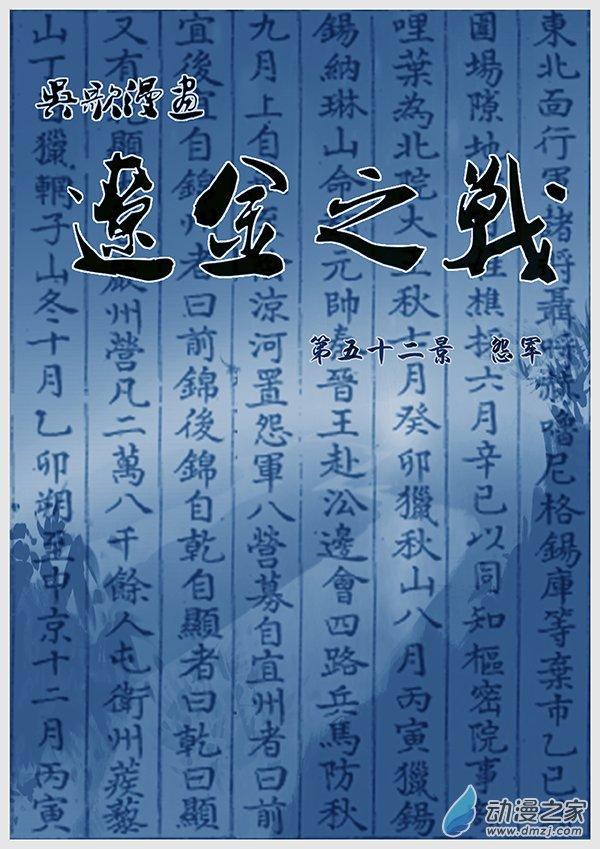 吳歌漫畫
遼金之戰
第五十二景 怨軍
東北面行軍諸將聶呼赫嚕尼格錫庫等棄市乙巳
圍場隙地姓樵採六月辛巳以同知樞密院事
哩葉為北院大王秋七月癸卯獵秋山八月丙寅獵錫
錫納琳山命元帥晉王赴沿邊會四路兵馬防秋
九月上自涼河置怨軍八營募自宜州者曰前
宜後自錦州者曰前錦後錦自乾自顯者曰乾曰顯
又有顯巖州營凡二萬八千餘人屯衛州蒺藜
山丁獵輞子山冬十月乙卯朔至中京十二月丙寅
动漫之家
www.dmzj.com